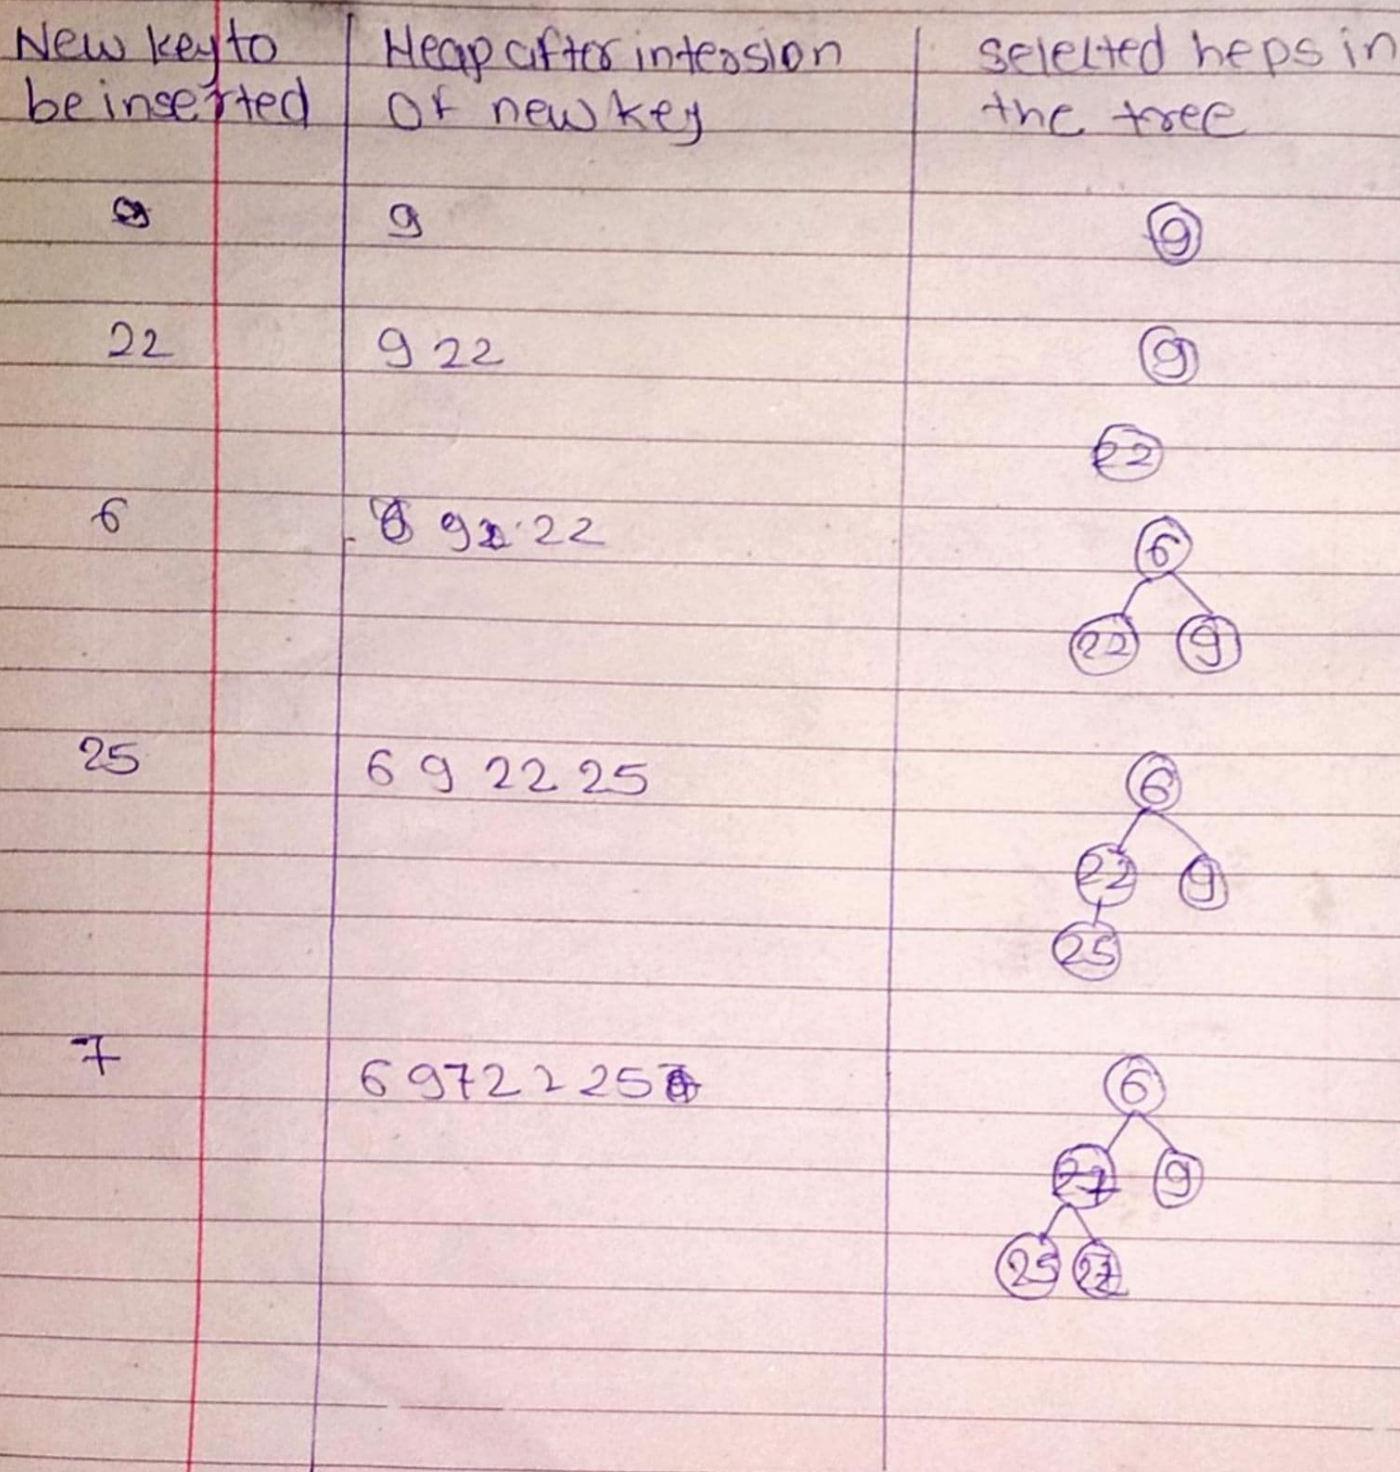 New key to
be inserted
Heap after intersion
Of new key
selected heps in
the tree
9
9
9
22
9 22
9
22
6
9 22
6
22 9
25
6 9 22 25
6
22 9
25
7
6 9 7 22 25
6
9
25